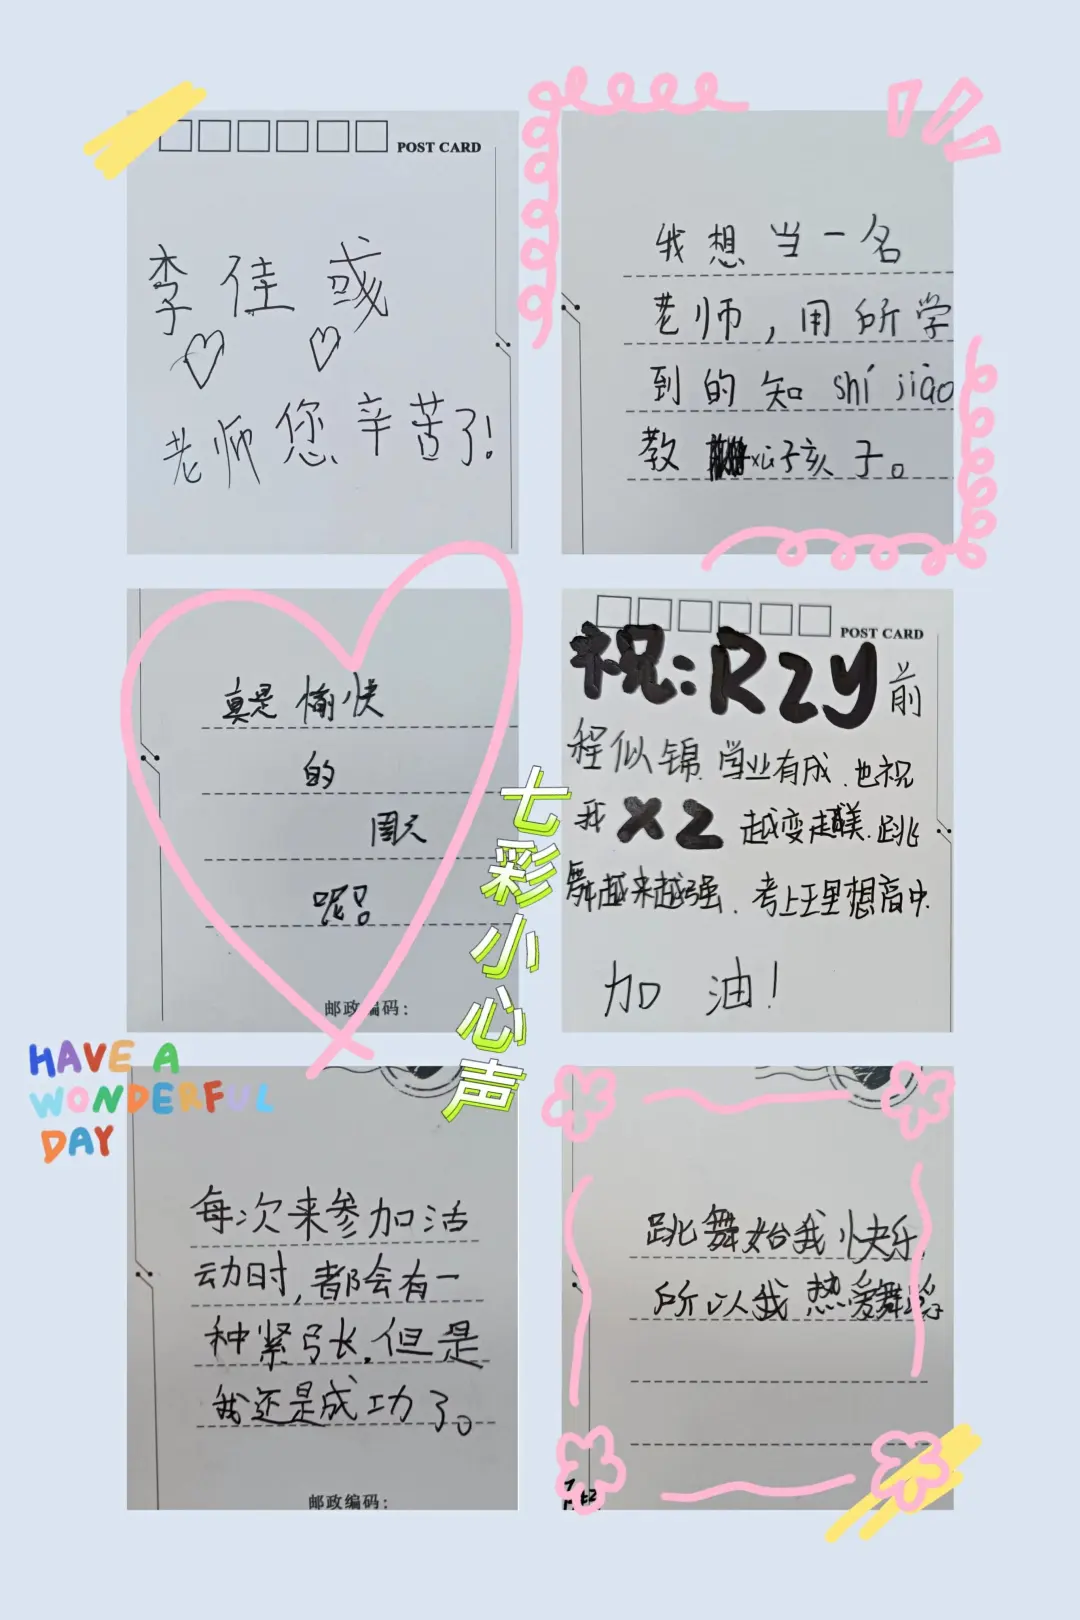 POST CARD
李佳彧
老师您辛苦了!
我想当一名
老师,用所学
到的知shí jiāo
教 xiǎo孩子。
真是愉快
的
周天
呢?
邮政编码:
POST CARD
祝:RZY前
程似锦.学业有成.也祝
我XZ越变越美.跳
舞越来越强.考上理想高中.
加油!
七彩小心声
HAVE A
WONDERFUL
DAY
每次来参加活
动时,都会有一
种紧张.但是
我还是成功了。
邮政编码:
跳舞始我快乐,
所以我热爱舞蹈